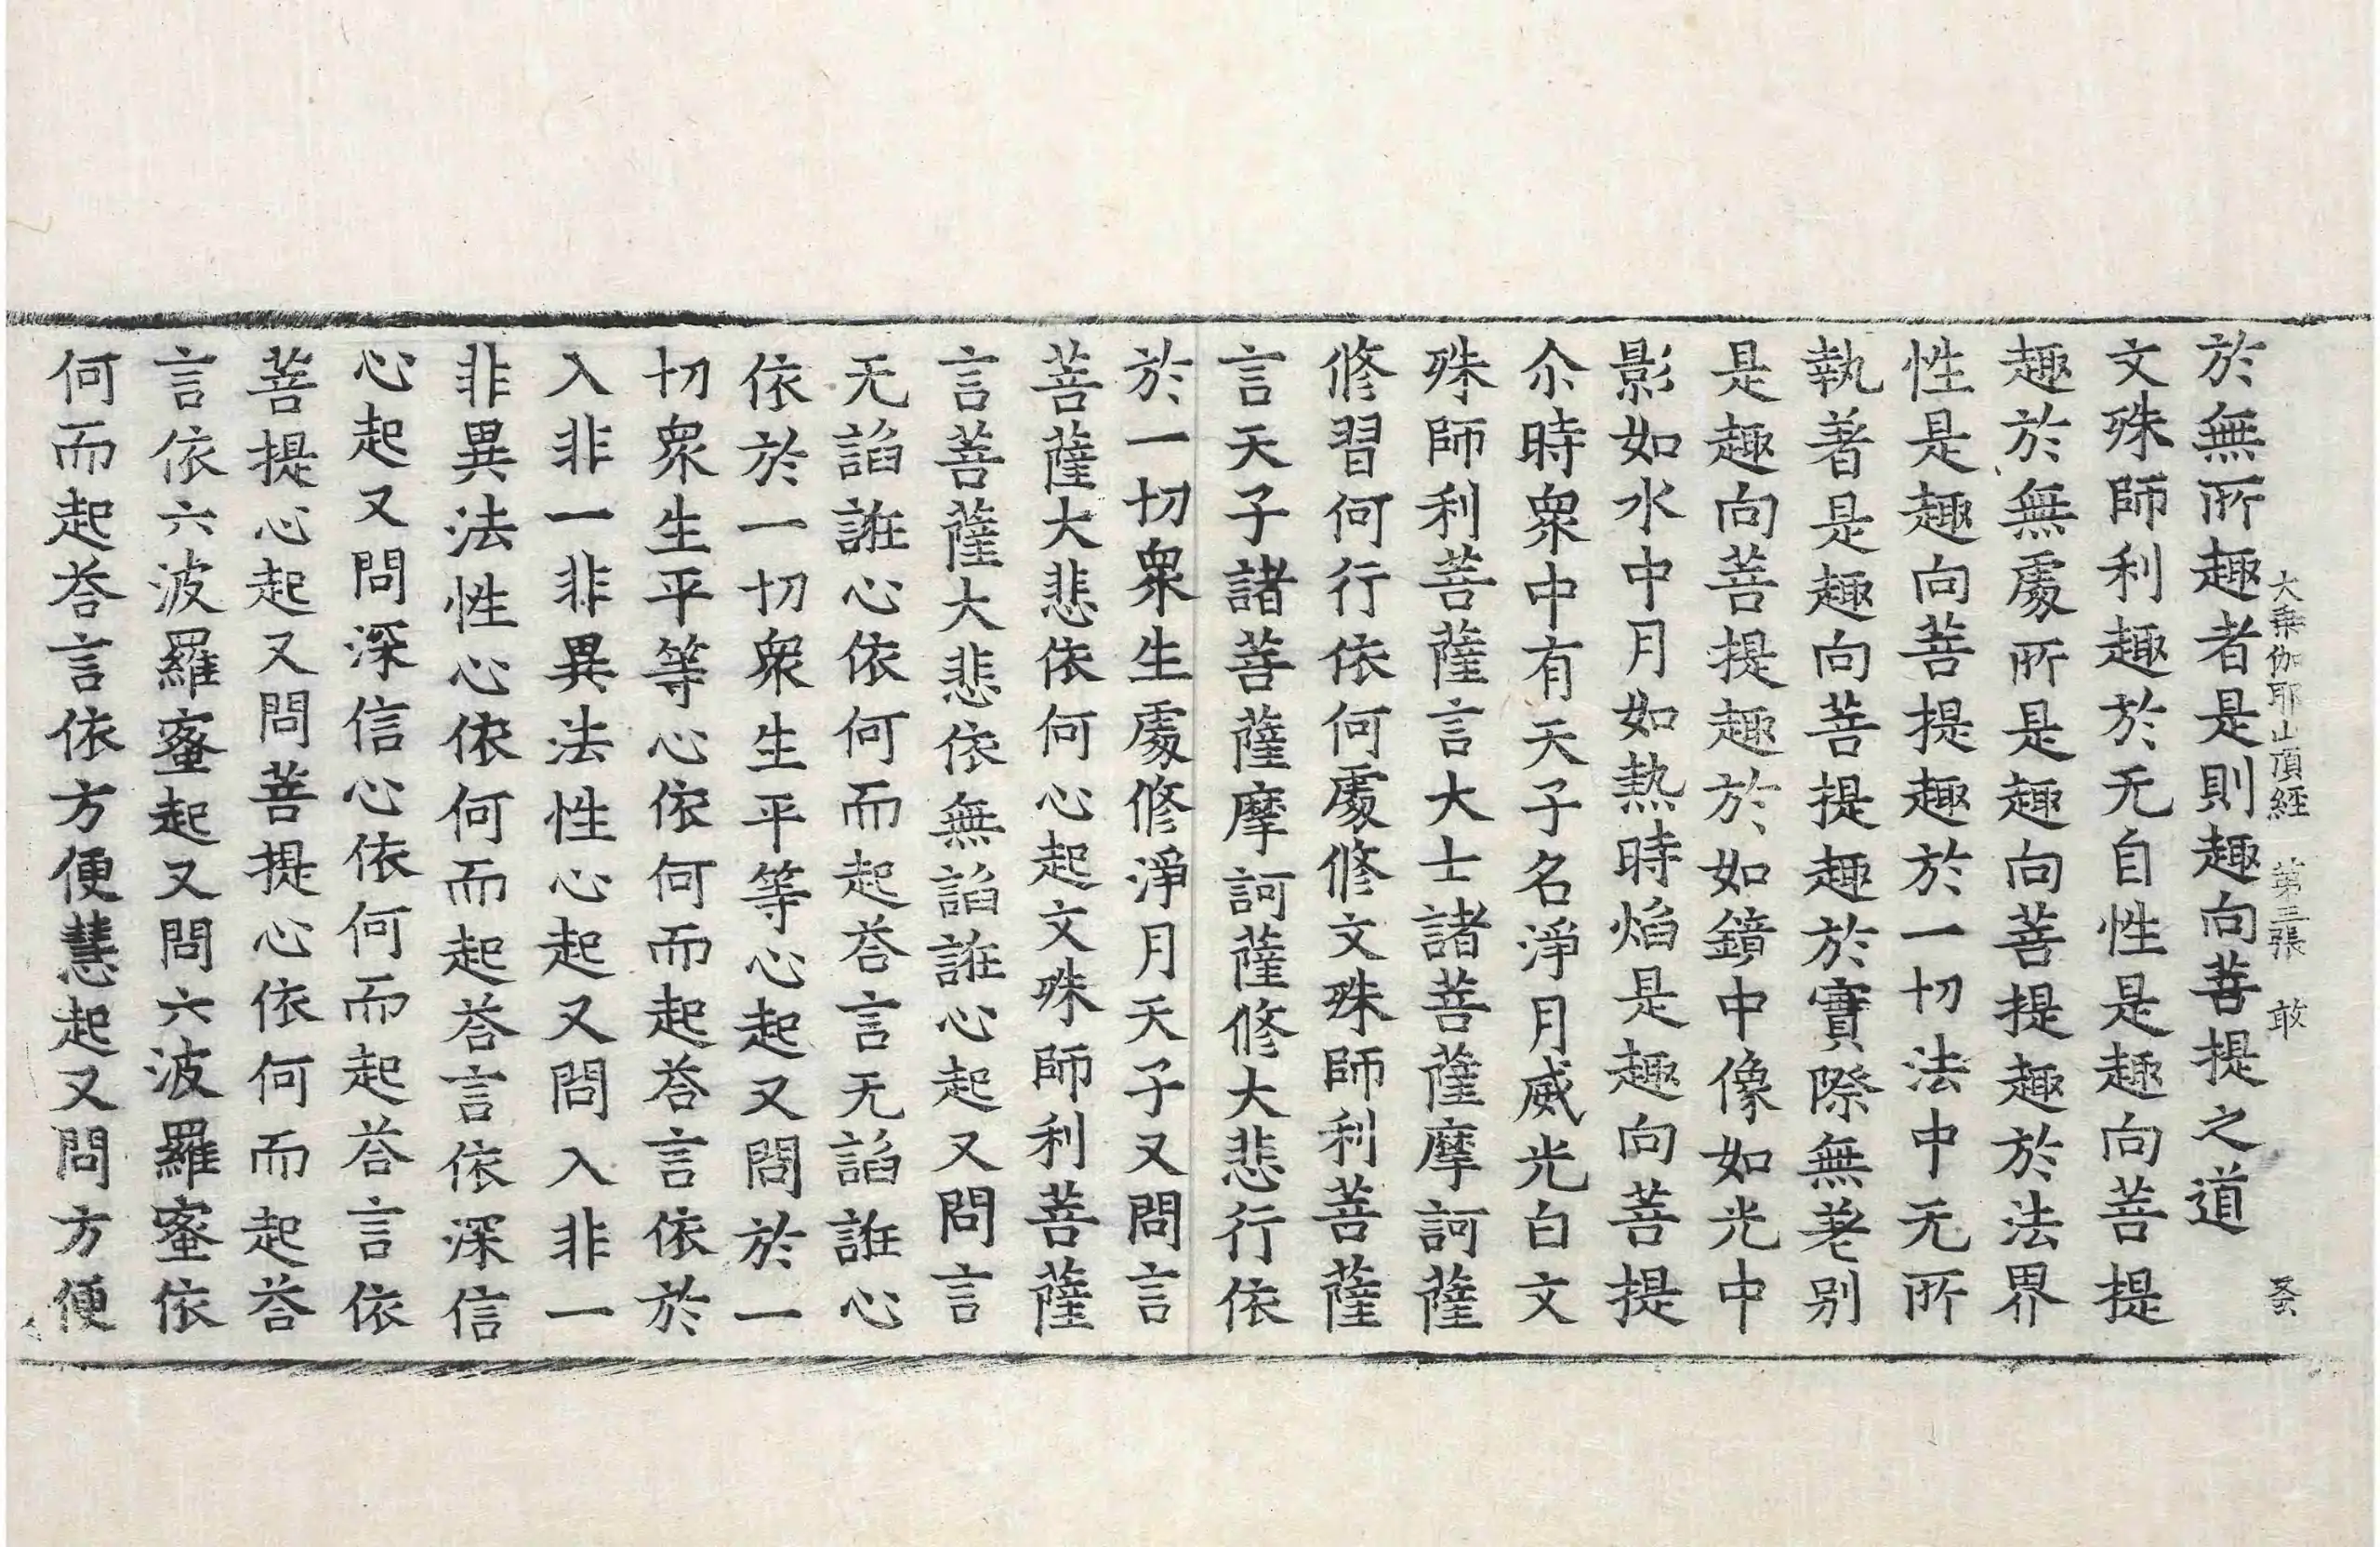 大乗伽耶山頂経 第三張 敢
於無所趣者是則趣向菩提之道
文殊師利趣於无自性是趣向菩提
趣於無處所是趣向菩提趣於法界
性是趣向菩提趣於一切法中无所
執著是趣向菩提趣於實際無差别
是趣向菩提趣於如鏡中像如光中
影如水中月如熱時焰是趣向菩提
尒時衆中有天子名淨月威光白文
殊師利菩薩言大士諸菩薩摩訶薩
修習何行依何處修文殊師利菩薩
言天子諸菩薩摩訶薩修大悲行依
於一切衆生處修淨月天子又問言
菩薩大悲依何心起文殊師利菩薩
言菩薩大悲依無諂誑心起又問言
无諂誑心依何而起荅言无諂誑心
依於一切衆生平等心起又問於一
切衆生平等心依何而起荅言依於
入非一非異法性心起又問入非一
非異法性心依何而起荅言依深信
心起又問深信心依何而起荅言依
菩提心起又問菩提心依何而起荅
言依六波羅蜜起又問六波羅蜜依
何而起荅言依方便慧起又問方便